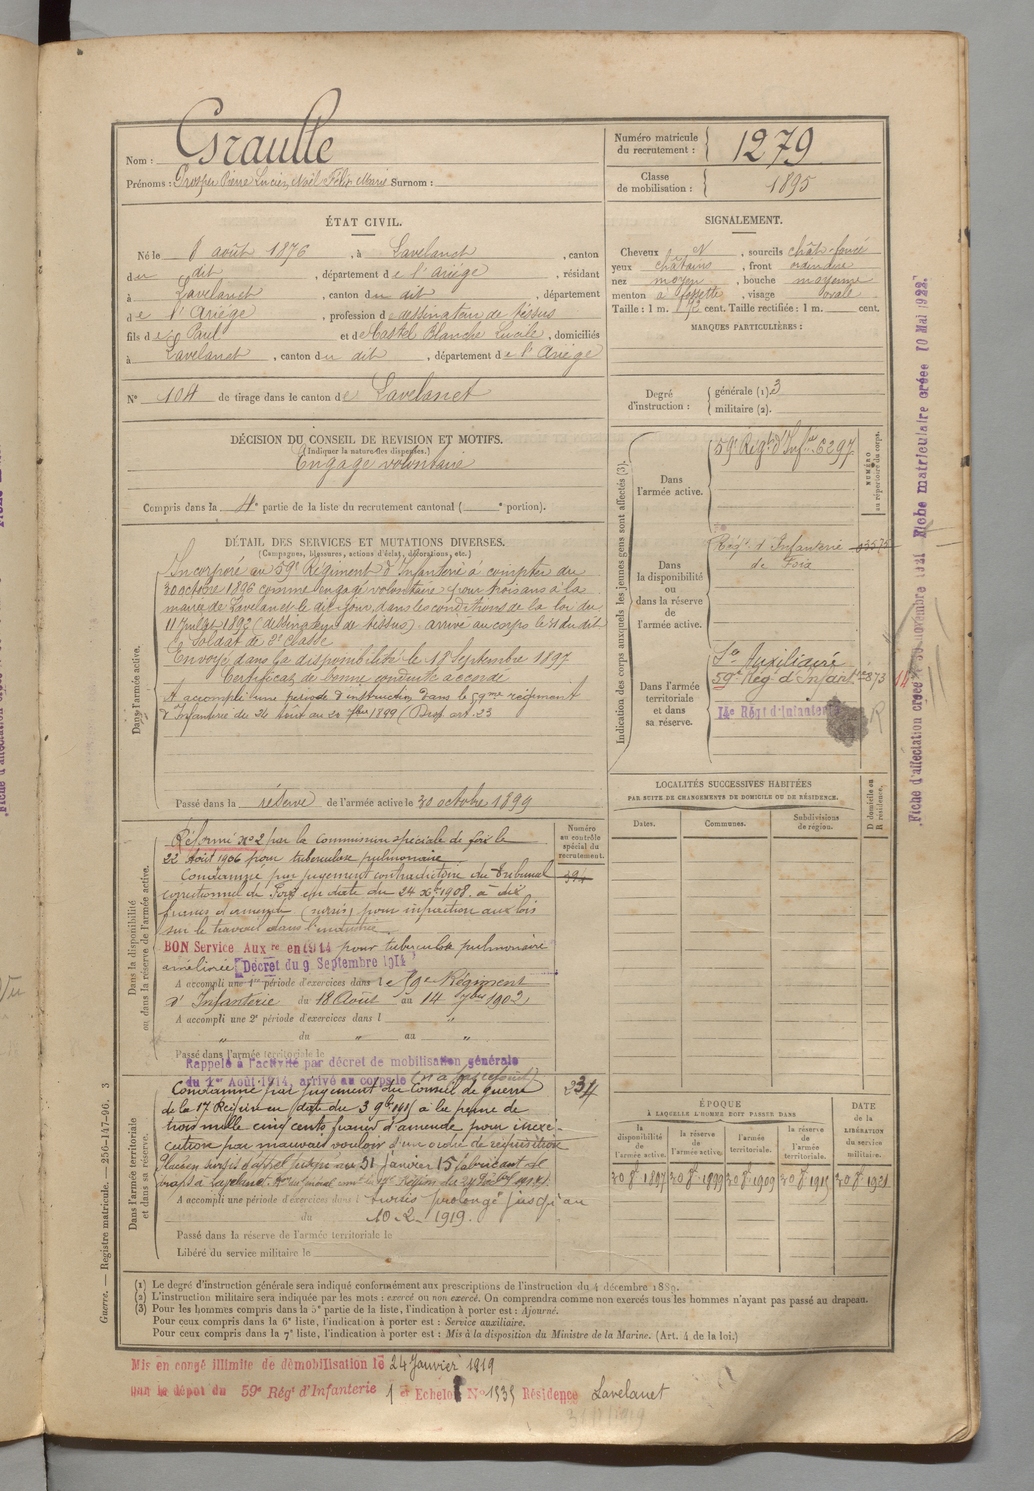 Nom : Graulle
Prénoms : Prosper Pierre Lucien Noël Félix Marie Surnom :
Numéro matricule du recrutement : 1279
Classe de mobilisation : 1895
ÉTAT CIVIL.
Né le 8 août 1876, à Lavelanet, canton
du dit, département de l'Ariège, résidant
à Lavelanet, canton du dit, département
de l'Ariège, profession de dessinateur de tissus
fils de Paul et de Castel Blanche Lucile, domiciliés
à Lavelanet, canton du dit, département de l'Ariège
N° 104 de tirage dans le canton de Lavelanet
SIGNALEMENT.
Cheveux N, sourcils chât-foncé
yeux châtains, front ordinaire
nez moyen, bouche moyenne
menton à fossette, visage ovale
Taille : 1 m. 72 cent. Taille rectifiée : 1 m. cent.
MARQUES PARTICULIÈRES :
Degré d'instruction : générale (1) 3
militaire (2).
DÉCISION DU CONSEIL DE REVISION ET MOTIFS.
(Indiquer la nature des dispenses.)
Engagé volontaire
Compris dans la 4e partie de la liste du recrutement cantonal ( e portion).
DÉTAIL DES SERVICES ET MUTATIONS DIVERSES.
(Campagnes, blessures, actions d'éclat, décorations, etc.)
Dans l'armée active.
Incorporé au 59e Régiment d'Infanterie à compter du
30 octobre 1896 comme engagé volontaire pour trois ans à la
mairie de Lavelanet le dit jour, dans les conditions de la loi du
11 Juillet 1892 (dessinateur de tissus) arrivé au corps le 31 du dit
Soldat de 2e classe
Envoyé dans la disponibilité le 18 Septembre 1897
Certificat de bonne conduite accordé
A accompli une période d'instruction dans le 59me régiment
d'Infanterie du 24 Août au 20 7bre 1899 (Disp. art. 23
Passé dans la réserve de l'armée active le 30 octobre 1899
Dans la disponibilité ou dans la réserve de l'armée active.
Réformé N° 2 par la commission spéciale de Foix le
22 Août 1906 pour tuberculose pulmonaire
Condamné par jugement contradictoire du Tribunal
correctionnel de Foix en date du 24 Xbre 1908 à dix
francs d'amende (sursis) pour infraction aux lois
sur le travail dans l'industrie
BON Service Auxre en 1914 pour tuberculose pulmonaire
améliorée Décret du 9 Septembre 1914
A accompli une 1re période d'exercices dans le 59e Régiment
d'Infanterie du 18 Août au 14 7bre 1902
A accompli une 2e période d'exercices dans l "
" du " au "
Passé dans l'armée territoriale le
Rappelé à l'activité par décret de mobilisation générale
du 1er Août 1914, arrivé au corps le
Numéro au contrôle spécial du recrutement.
234
Dans l'armée territoriale et dans sa réserve.
Condamné par jugement du Conseil de guerre
de la 17e Région en date du 3 9bre 1915 à la peine de
trois mille cinq cents francs d'amende pour inexé-
cution par mauvais vouloir d'un ordre de réquisition
Placé en sursis d'appel jusqu'au 31 janvier 15 fabricant de
draps à Lavelanet.
A accompli une période d'exercices dans l sursis prolongé jusqu'au
du 10-2-1919.
Passé dans la réserve de l'armée territoriale le
Libéré du service militaire le
Indication des corps auxquels les jeunes gens sont affectés (3).
NUMÉRO au répertoire du corps.
Dans l'armée active.
59e Régt d'Infie 6297
Dans la disponibilité ou dans la réserve de l'armée active.
Régt d'Infanterie de Foix 03575
Dans l'armée territoriale et dans sa réserve.
Sce Auxiliaire
59e Rég. d'Infanterie
14e Régt d'Infanterie
R
LOCALITÉS SUCCESSIVES HABITÉES
PAR SUITE DE CHANGEMENTS DE DOMICILE OU DE RÉSIDENCE.
D domicile ou R résidence.
Dates. Communes. Subdivisions de région.
ÉPOQUE
À LAQUELLE L'HOMME DOIT PASSER DANS
DATE DE LA LIBÉRATION du service militaire.
la disponibilité de l'armée active. la réserve de l'armée active. l'armée territoriale. la réserve de l'armée territoriale.
30 8bre 1897 30 8bre 1899 30 8bre 1909 30 8bre 1915 30 8bre 1921
(1) Le degré d'instruction générale sera indiqué conformément aux prescriptions de l'instruction du 4 décembre 1889.
(2) L'instruction militaire sera indiquée par les mots : exercé ou non exercé. On comprendra comme non exercés tous les hommes n'ayant pas passé au drapeau.
(3) Pour les hommes compris dans la 5e partie de la liste, l'indication à porter est : Ajourné.
Pour ceux compris dans la 6e liste, l'indication à porter est : Service auxiliaire.
Pour ceux compris dans la 7e liste, l'indication à porter est : Mis à la disposition du Ministre de la Marine. (Art. 4 de la loi.)
Mis en congé illimité de démobilisation le 24 Janvier 1919
par le dépôt du 59e Régt d'Infanterie 1er Echelon N° 1535 Résidence Lavelanet
Guerre. — Registre matricule. — 256-147-96. 3
Fiche d'affectation créée novembre 1921 Fiche matriculaire créée 10 Mai 1922.